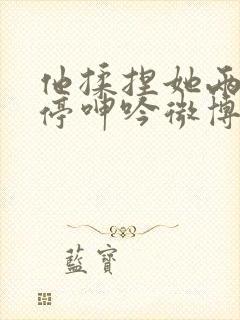 他揉捏她两
停呻吟微博
蓝寶